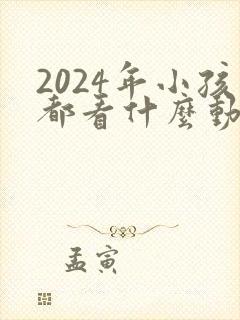 2024年小孩
都看什麼動
孟寅